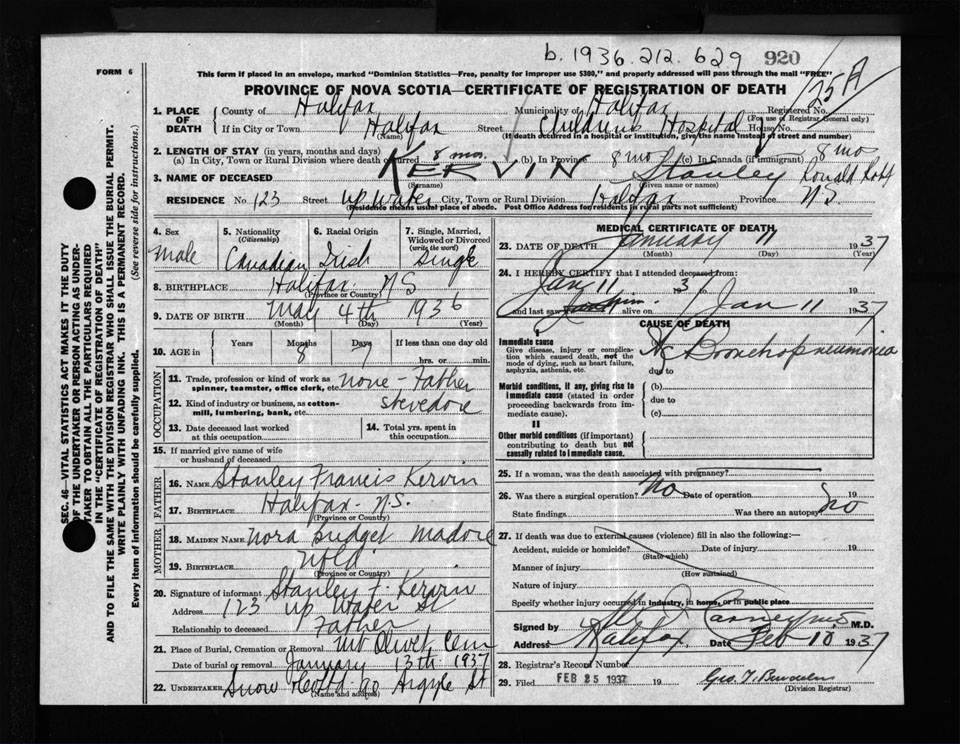 b. 1936. 212. 629 920
FORM 6
This form if placed in an envelope, marked "Dominion Statistics—Free, penalty for improper use $300," and properly addressed will pass through the mail "FREE"
PROVINCE OF NOVA SCOTIA—CERTIFICATE OF REGISTRATION OF DEATH
25 A
1. PLACE OF DEATH County of Halifax Municipality of Halifax Registered No.
(For use of Registrar General only)
If in City or Town Halifax Street Childrens Hospital House No.
(Name) (If death occurred in a hospital or institution, give the name instead of street and number)
2. LENGTH OF STAY (in years, months and days)
(a) In City, Town or Rural Division where death occurred 8 mos. (b) In Province 8 mo (c) In Canada (if immigrant) 8 mo
3. NAME OF DECEASED KERVIN Stanley Ronald
(Surname) (Given name or names)
RESIDENCE No. 123 Street Up Water City, Town or Rural Division Halifax Province N.S.
(Residence means usual place of abode. Post Office Address for residents in rural parts not sufficient)
4. Sex 5. Nationality (Citizenship) 6. Racial Origin 7. Single, Married, Widowed or Divorced (write the word)
Male Canadian Irish Single
8. BIRTHPLACE Halifax N S
(Province or Country)
9. DATE OF BIRTH May 4th 1936
(Month) (Day) (Year)
10. AGE in Years Months Days If less than one day old
8 7 hrs. or min.
OCCUPATION
11. Trade, profession or kind of work as spinner, teamster, office clerk, etc. none - Father
12. Kind of industry or business, as cotton-mill, lumbering, bank, etc. stevedore
13. Date deceased last worked at this occupation
14. Total yrs. spent in this occupation
15. If married give name of wife or husband of deceased
FATHER
16. NAME Stanley Francis Kervin
17. BIRTHPLACE Halifax - N.S.
(Province or Country)
MOTHER
18. MAIDEN NAME Nora Bridget Madore
19. BIRTHPLACE Nfld
(Province or Country)
20. Signature of informant Stanley F. Kervin
Address 123 Up Water St
Relationship to deceased Father
21. Place of Burial, Cremation or Removal Mt Olivet Cem
Date of burial or removal January 13th 1937
22. UNDERTAKER Snow 90 Argyle St
MEDICAL CERTIFICATE OF DEATH
23. DATE OF DEATH January 11 1937
(Month) (Day) (Year)
24. I HEREBY CERTIFY that I attended deceased from:
Jan 11 1937 to Jan 11 1937
and last saw him alive on
CAUSE OF DEATH
I
Immediate cause
Give disease, injury or complication which caused death, not the mode of dying, such as heart failure, asphyxia, asthenia, etc.
(a) Bronchopneumonia
due to
Morbid conditions, if any, giving rise to immediate cause (stated in order proceeding backwards from immediate cause).
(b)
due to
(c)
II
Other morbid conditions (if important) contributing to death but not causally related to immediate cause.
25. If a woman, was the death associated with pregnancy?
26. Was there a surgical operation? No Date of operation 19
State findings Was there an autopsy? No
27. If death was due to external causes (violence) fill in also the following:
Accident, suicide or homicide? Date of injury 19
(State which)
Manner of injury
(How sustained)
Nature of injury
Specify whether injury occurred in industry, in home, or in public place
Signed by M.D.
Address Halifax Date Feb 10 1937
28. Registrar's Record Number
29. Filed FEB 25 1937 19
(Division Registrar)
SEC. 46—VITAL STATISTICS ACT MAKES IT THE DUTY
OF THE UNDERTAKER OR PERSON ACTING AS UNDER-
TAKER TO OBTAIN ALL THE PARTICULARS REQUIRED
IN THE "CERTIFICATE OF REGISTRATION OF DEATH"
AND TO FILE THE SAME WITH THE DIVISION REGISTRAR WHO SHALL ISSUE THE BURIAL PERMIT.
WRITE PLAINLY WITH UNFADING INK. THIS IS A PERMANENT RECORD.
Every item of information should be carefully supplied. (See reverse side for instructions.)